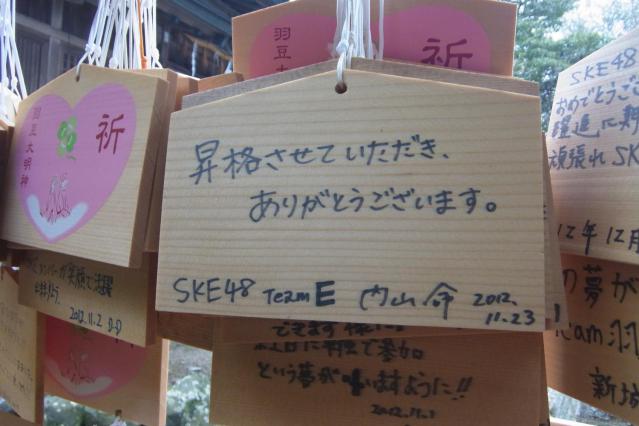 羽豆大明神
祈
羽豆大
祈
昇格させていただき、
ありがとうございます。
SKE48 Team E 内山命 2012.
11.23
SKE48
おめでとうござ
躍進に期
頑張れSK
12年12月
メンバーが笑顔で活躍
2012.11.2
できます様に
で参加
という夢が叶いますように!!
2012.11.1
の夢が
Team羽